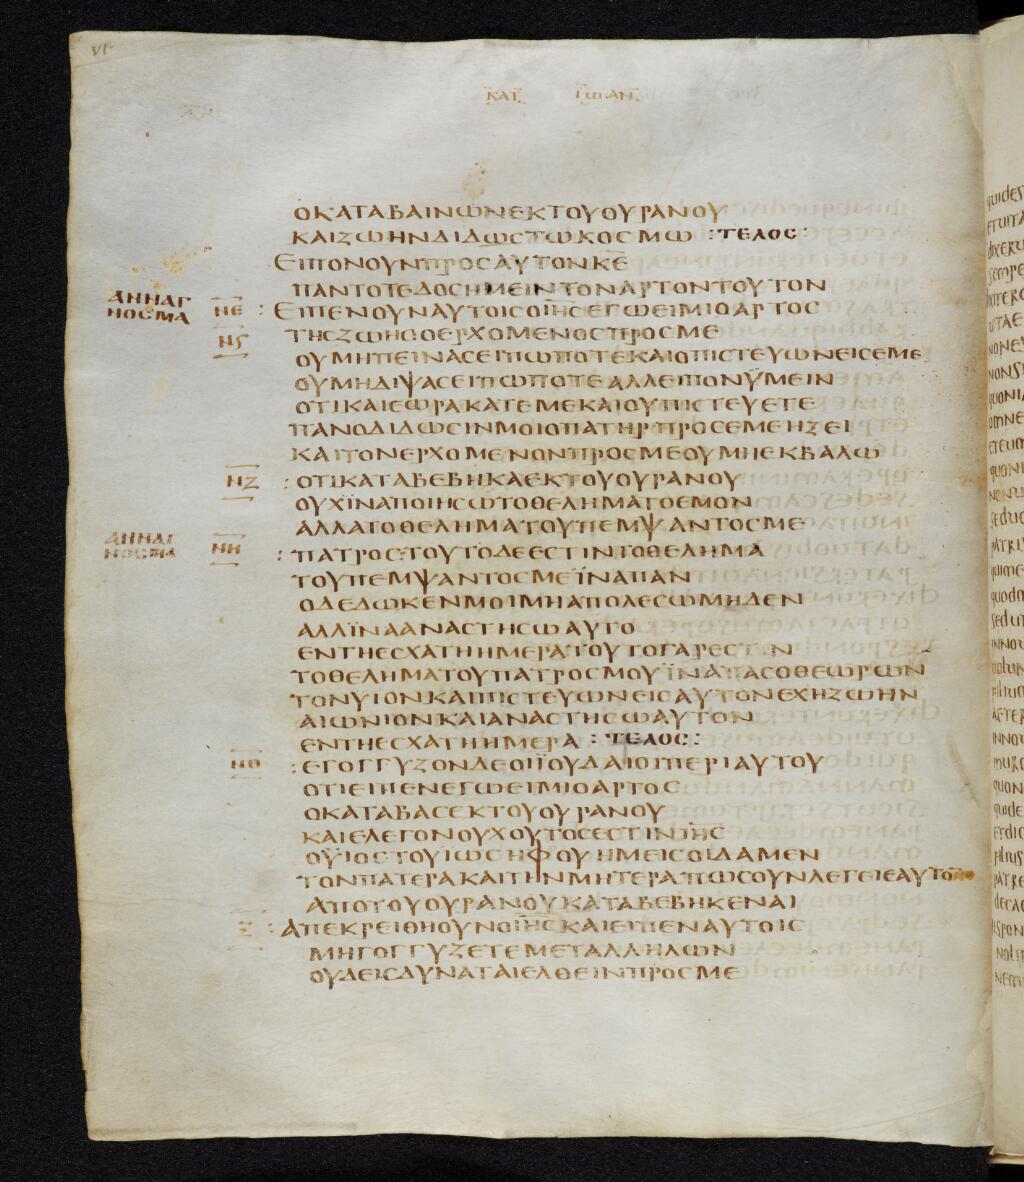 VI
ΚΑΤ ΙΩΑΝ
ΟΚΑΤΑΒΑΙΝΩΝΕΚΤΟΥΟΥΡΑΝΟΥ
ΚΑΙΖΩΗΝΔΙΔΩΣΤΩΚΟΣΜΩ :ΤΕΛΟΣ:
ΕΙΠΟΝΟΥΝΠΡΟΣΑΥΤΟΝΚΕ
ΠΑΝΤΟΤΕΔΟΣΗΜΕΙΝΤΟΝΑΡΤΟΝΤΟΥΤΟΝ
ΑΝΝΑΓΝΟΣΜΑ ΝΕ : ΕΙΠΕΝΟΥΝΑΥΤΟΙΣΟΙΗΣΕΓΩΕΙΜΙΟΑΡΤΟΣ
Νς ΤΗΣΖΩΗΣΟΕΡΧΟΜΕΝΟΣΠΡΟΣΜΕ
ΟΥΜΗΠΕΙΝΑΣΕΙΠΩΠΟΤΕΚΑΙΟΠΙΣΤΕΥΩΝΕΙΣΕΜΕ
ΟΥΜΗΔΙΨΑΣΕΙΠΩΠΟΤΕΑΛΛΕΙΠΟΝΫΜΕΙΝ
ΟΤΙΚΑΙΕΩΡΑΚΑΤΕΜΕΚΑΙΟΥΠΙΣΤΕΥΕΤΕ
ΠΑΝΟΔΙΔΩΣΙΝΜΟΙΟΠΑΤΗΡΠΡΟΣΕΜΕΗΞΕΙ
ΚΑΙΤΟΝΕΡΧΟΜΕΝΟΝΠΡΟΣΜΕΟΥΜΗΕΚΒΑΛΩ
ΝΖ : ΟΤΙΚΑΤΑΒΕΒΗΚΑΕΚΤΟΥΟΥΡΑΝΟΥ
ΟΥΧΪΝΑΠΟΙΗΣΩΤΟΘΕΛΗΜΑΤΟΕΜΟΝ
ΑΛΛΑΤΟΘΕΛΗΜΑΤΟΥΠΕΜΨΑΝΤΟΣΜΕ
ΑΝΝΑΓΝΟΣΜΑ ΝΗ : ΠΑΤΡΟΣ:ΤΟΥΤΟΔΕΕΣΤΙΝΤΟΘΕΛΗΜΑ
ΤΟΥΠΕΜΨΑΝΤΟΣΜΕΪΝΑΠΑΝ
ΟΔΕΔΩΚΕΝΜΟΙΜΗΑΠΟΛΕΣΩΜΗΔΕΝ
ΑΛΛΪΝΑΑΝΑΣΤΗΣΩΑΥΤΟ
ΕΝΤΗΕΣΧΑΤΗΗΜΕΡΑΤΟΥΤΟΓΑΡΕΣΤΙΝ
ΤΟΘΕΛΗΜΑΤΟΥΠΑΤΡΟΣΜΟΥΪΝΑΠΑΣΟΘΕΩΡΩΝ
ΤΟΝΥΙΟΝΚΑΙΠΙΣΤΕΥΩΝΕΙΣΑΥΤΟΝΕΧΗΖΩΗΝ
ΑΙΩΝΙΟΝΚΑΙΑΝΑΣΤΗΣΩΑΥΤΟΝ
ΕΝΤΗΕΣΧΑΤΗΗΜΕΡΑ :ΤΕΛΟΣ:
ΝΘ : ΕΓΟΓΓΥΖΟΝΔΕΟΙΪΟΥΔΑΙΟΙΠΕΡΙΑΥΤΟΥ
ΟΤΙΕΙΠΕΝΕΓΩΕΙΜΙΟΑΡΤΟΣ
ΟΚΑΤΑΒΑΣΕΚΤΟΥΟΥΡΑΝΟΥ
ΚΑΙΕΛΕΓΟΝΟΥΧΟΥΤΟΣΕΣΤΙΝΙΗΣ
ΟΥΪΟΣΤΟΥΙΩΣΗΦΟΥΗΜΕΙΣΟΙΔΑΜΕΝ
ΤΟΝΠΑΤΕΡΑΚΑΙΤΗΝΜΗΤΕΡΑΠΩΣΟΥΝΛΕΓΕΙΕΑΥΤΟΝ
ΑΠΟΤΟΥΟΥΡΑΝΟΥΚΑΤΑΒΕΒΗΚΕΝΑΙ
Ξ : ΑΠΕΚΡΕΙΘΗΟΥΝΟΙΗΣΚΑΙΕΙΠΕΝΑΥΤΟΙΣ
ΜΗΓΟΓΓΥΖΕΤΕΜΕΤΑΛΛΗΛΩΝ
ΟΥΔΕΙΣΔΥΝΑΤΑΙΕΛΘΕΙΝΠΡΟΣΜΕ